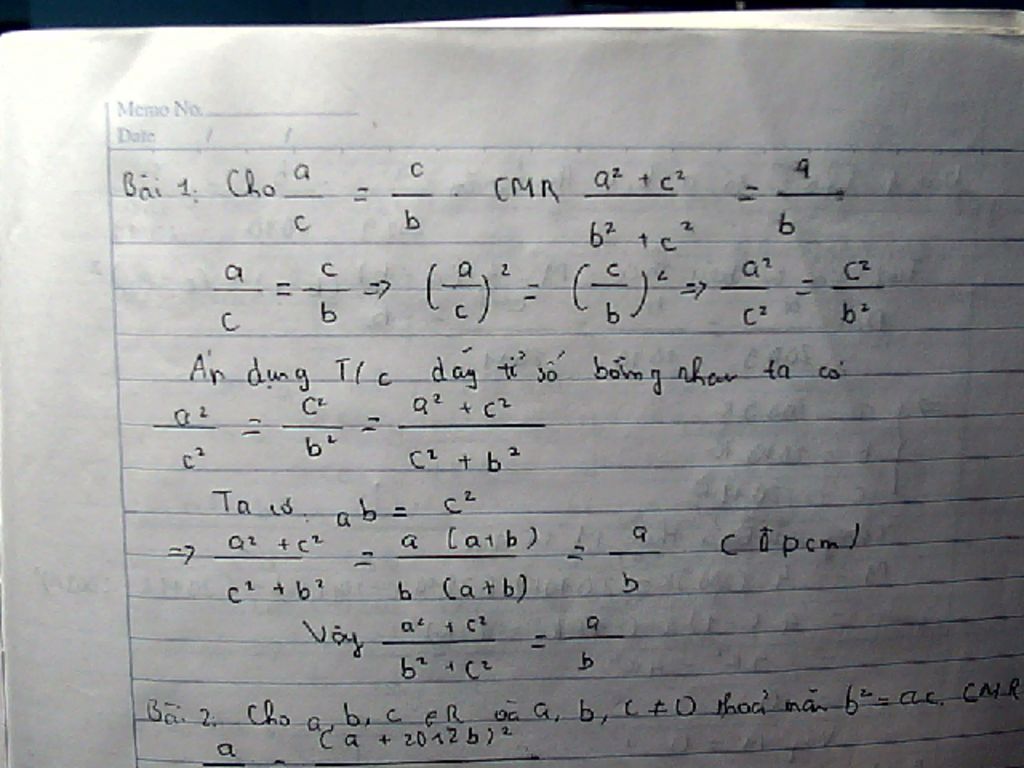 Memo No.
Date / /
Bài 1. Cho a/c = c/b . CMR (a² + c²)/(b² + c²) = a/b .
a/c = c/b => (a/c)² = (c/b)² => a²/c² = c²/b²
Áp dụng T/c dãy tỉ số bằng nhau ta có
a²/c² = c²/b² = (a² + c²)/(c² + b²)
Ta có. ab = c²
=> (a² + c²)/(c² + b²) = a(a+b)/b(a+b) = a/b (Đpcm)
Vậy (a² + c²)/(b² + c²) = a/b
Bài 2. Cho a, b, c ∈ R và a, b, c ≠ 0 thoả mãn b² = ac. CMR
a = (a + 2012b)²